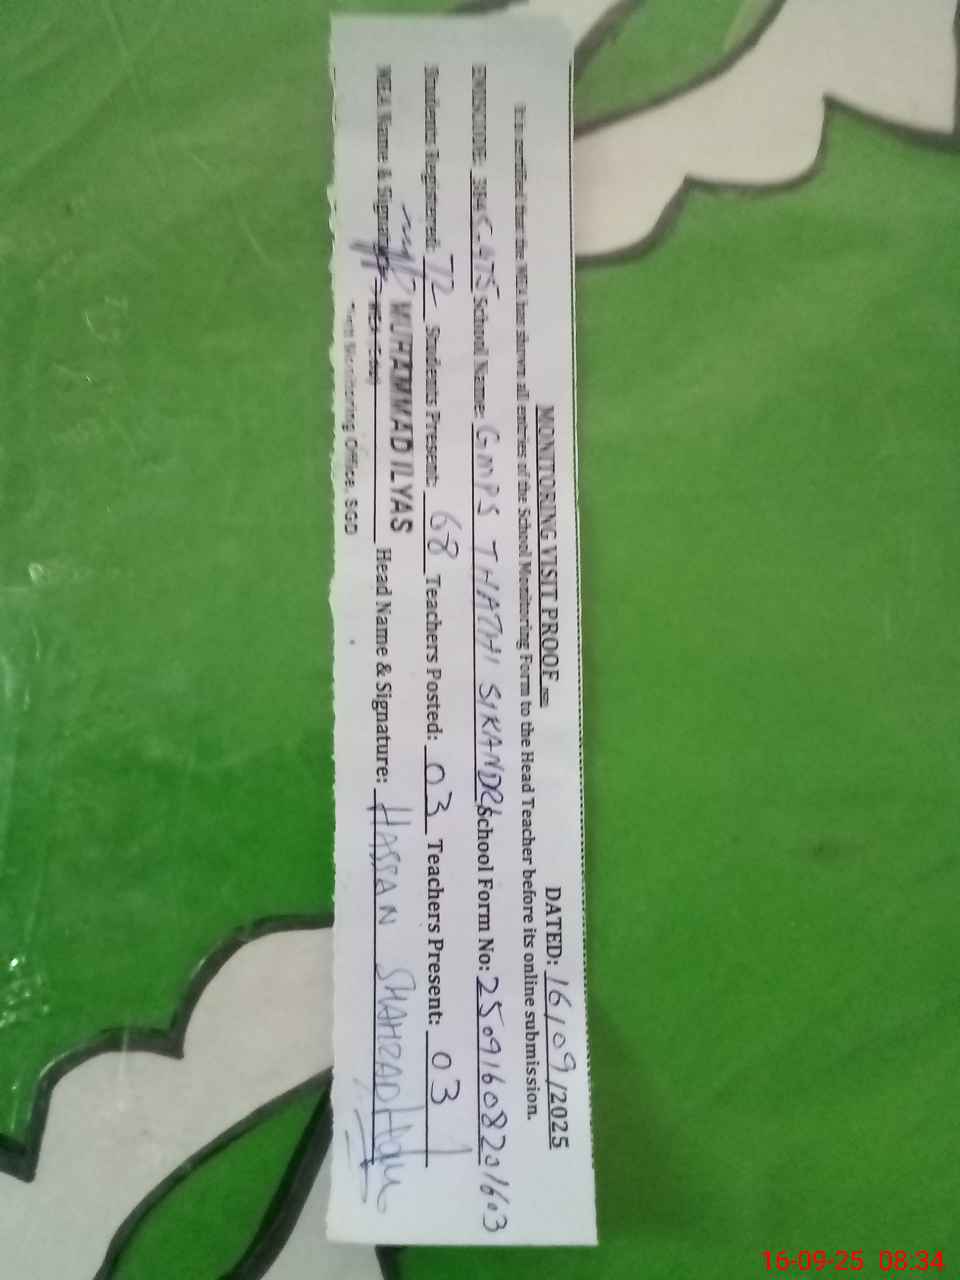 MONITORING VISIT PROOF DATED: 16/09/2025
It is certified that the MEA has shown all entries of the School Monitoring Form to the Head Teacher before its online submission.
EMISCODE: School Name: GMPS THATHI School Form No: 25091608201603
Students Registered: 72 Students Present: 68 Teachers Posted: 03 Teachers Present: 03
MEA Name & Signature MUHAMMAD ILYAS Head Name & Signature: HASSAN SHAHZAD
Monitoring Office, SGD
16-09-25 08:34